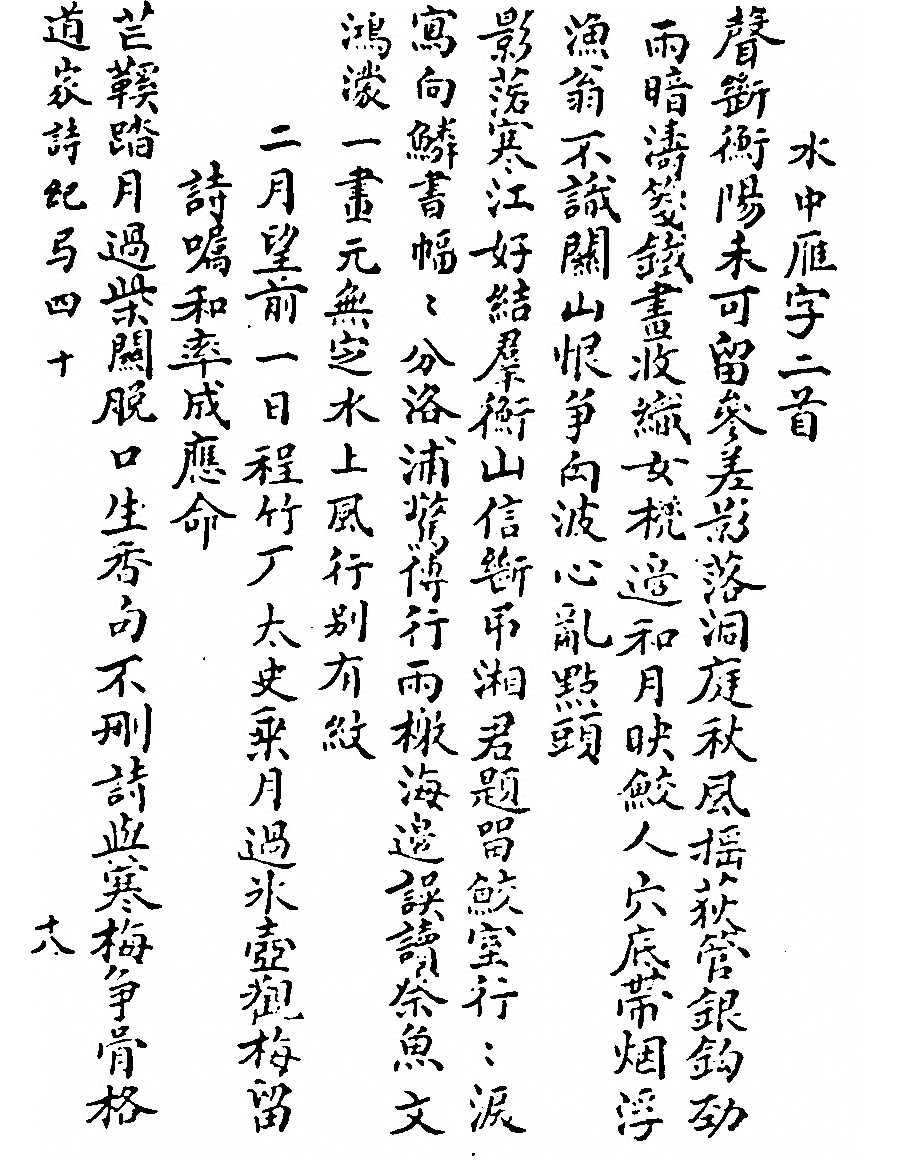 水中雁字二首
聲斷衡陽未可留參差影落洞庭秋風摇荻管銀鈎勁
雨暗濤箋鐵畫收織女機邊和月映鮫人穴底帶烟浮
漁翁不識關山恨爭向波心亂點頭
影落寒江好結羣衡山信斷吊湘君題留鮫室行〻淚
寫向鱗書幅〻分洛浦驚傳行雨檄海邊誤讀祭魚文
鴻濛一畫元無定水上風行别有紋
二月望前一日程竹厂太史乘月過氷壺觀梅留
詩囑和率成應命
芒鞵踏月過柴關脫口生香句不刪詩與寒梅争骨格
道家詩紀弓四十
十八